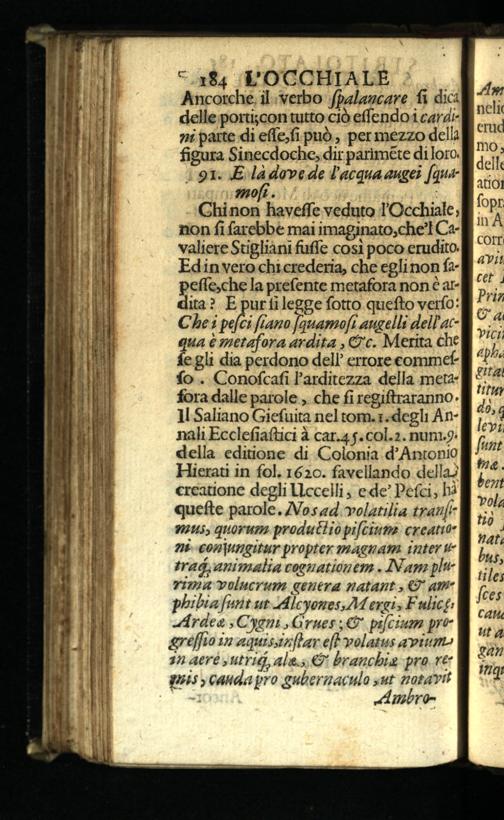 184 L'OCCHIALE
Ancorche il verbo ſpalancare ſi dica
delle porti; con tutto ciò eſſendo i cardi-
ni parte di eſſe, ſi può, per mezzo della
figura Sinecdoche, dir parimẽte di loro.
91. E là dove de l'acqua augei ſqua-
moſi.
Chi non haveſſe veduto l'Occhiale,
non ſi ſarebbe mai imaginato, che'l Ca-
valiere Stigliani fuſſe così poco erudito.
Ed in vero chi crederia, che egli non ſa-
peſſe, che la preſente metafora non è ar-
dita? E pur ſi legge ſotto queſto verſo:
Che i peſci ſiano ſquamoſi augelli dell'ac-
qua è metafora ardita, &c. Merita che
ſe gli dia perdono dell'errore commeſ-
ſo. Conoſcaſi l'arditezza della meta-
fora dalle parole, che ſi regiſtraranno.
Il Saliano Gieſuita nel tom. 1. degli An-
nali Eccleſiaſtici à car. 45. col. 2. num. 9.
della editione di Colonia d'Antonio
Hierati in fol. 1620. favellando della
creatione degli Uccelli, e de' Peſci, hà
queſte parole. Nos ad volatilia tranſi-
mus, quorum productio piſcium creatio-
ni conjungitur propter magnam inter u-
traq; animalia cognationem. Nam plu-
rima volucrum genera natant, & am-
phibia ſunt ut Alcyones, Mergi, Fulicę,
Ardeæ, Cygni, Grues; & piſcium pro-
greſſio in aquis, inſtar eſt volatus avium
in aere, utriq; alæ, & branchiæ pro re-
mis, cauda pro gubernaculo, ut notavit
Ambro-